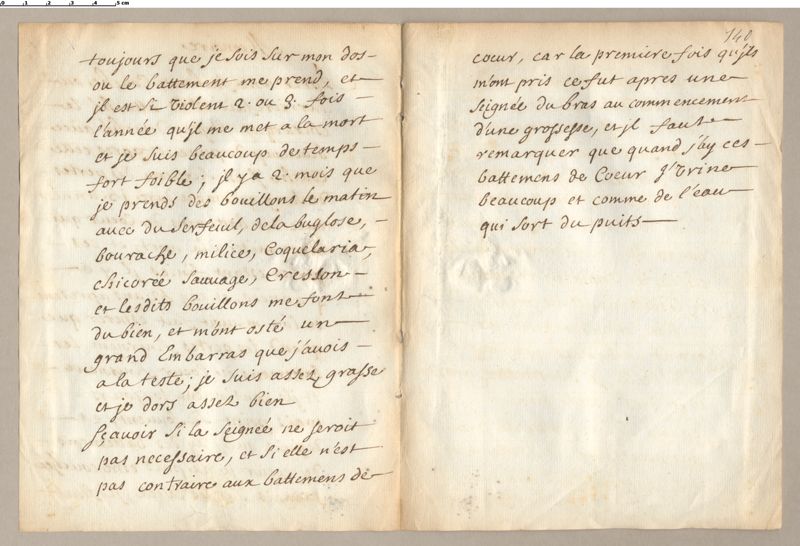 toujours que je sois sur mon dos
ou le battement me prend, et
jl est si violent 2. ou 3. fois
l'année qu'jl me met a la mort
et je suis beaucoup de temps
fort foible; jl y a 2. mois que
je prends des bouillons le matin
avec du serfeuil, de la buglose,
bourache, milice, Coquelaria,
chicorée sauuage, Cresson
et lesdits bouillons me font
du bien, et m'ont osté un
grand Embarras que j'auois
a la teste; je suis assez grasse
et je dors assez bien
sçauoir si la seignée ne seroit
pas necessaire, et si elle n'est
pas contraire aux battemens de
140
coeur, car la premiere fois qu'jls
m'ont pris ce fut apres une
seignée du bras au commencement
d'une grossesse, et jl faut
remarquer que quand j'ay ces
battemens de Coeur j'Vrine
beaucoup et comme de l'eau
qui sort du puits
0 1 2 3 4 5 cm